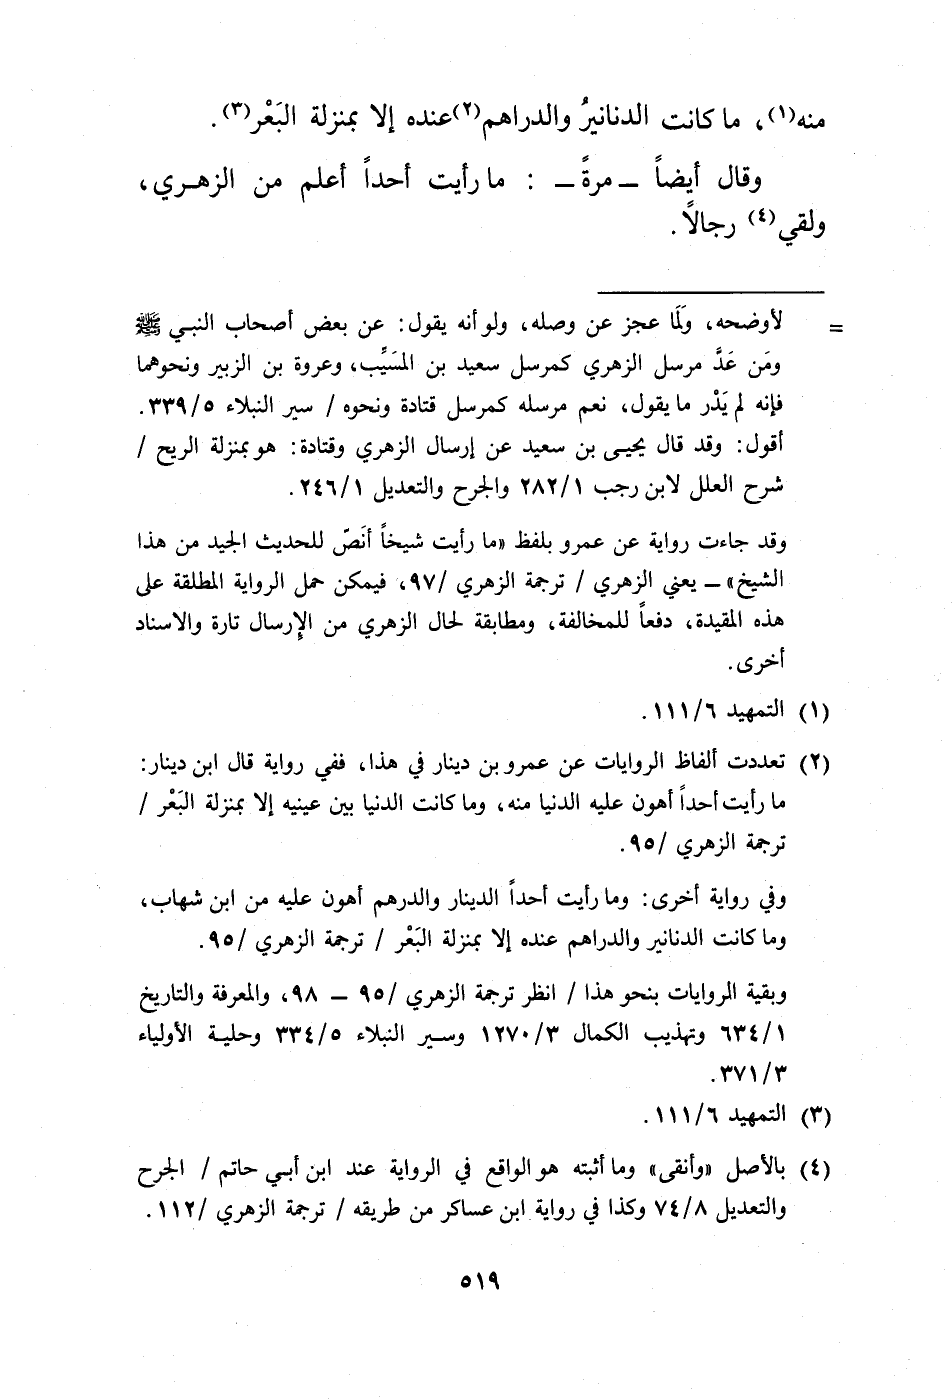 منه(١)، ما كانت الدنانيرُ والدراهم(٢)عنده إلا بمنزلة البَعْر(٣).
وقال أيضاً ــ مرةً ــ : ما رأيت أحداً أعلم من الزهري،
ولقي(٤) رجالاً.
= لأوضحه، ولَمَا عجز عن وصله، ولو أنه يقول: عن بعض أصحاب النبي ﷺ
ومَن عَدَّ مرسل الزهري كمرسل سعيد بن المسَيِّب، وعروة بن الزبير ونحوهما
فإنه لم يَدْر ما يقول، نعم مرسله كمرسل قتادة ونحوه / سير النبلاء ٣٣٩/٥.
أقول: وقد قال يحيى بن سعيد عن إرسال الزهري وقتادة: هو بمنزلة الريح /
شرح العلل لابن رجب ٢٨٢/١ والجرح والتعديل ٢٤٦/١.
وقد جاءت رواية عن عمرو بلفظ «ما رأيت شيخاً أنَصّ للحديث الجيد من هذا
الشيخ» ــ يعني الزهري / ترجمة الزهري /٩٧، فيمكن حمل الرواية المطلقة على
هذه المقيدة، دفعاً للمخالفة، ومطابقة لحال الزهري من الإرسال تارة والاسناد
أخرى.
(١) التمهيد ١١١/٦.
(٢) تعددت ألفاظ الروايات عن عمرو بن دينار في هذا، ففي رواية قال ابن دينار:
ما رأيت أحداً أهون عليه الدنيا منه، وما كانت الدنيا بين عينيه إلا بمنزلة البَعْر /
ترجمة الزهري /٩٥.
وفي رواية أخرى: وما رأيت أحداً الدينار والدرهم أهون عليه من ابن شهاب،
وما كانت الدنانير والدراهم عنده إلا بمنزلة البَعْر / ترجمة الزهري /٩٥.
وبقية الروايات بنحو هذا / انظر ترجمة الزهري /٩٥ ــ ٩٨، والمعرفة والتاريخ
٦٣٤/١ وتهذيب الكمال ١٢٧٠/٣ وسير النبلاء ٣٣٤/٥ وحلية الأولياء
٣٧١/٣.
(٣) التمهيد ١١١/٦.
(٤) بالأصل «وأنقى» وما أثبته هو الواقع في الرواية عند ابن أبي حاتم / الجرح
والتعديل ٧٤/٨ وكذا في رواية ابن عساكر من طريقه / ترجمة الزهري /١١٢.
٥١٩